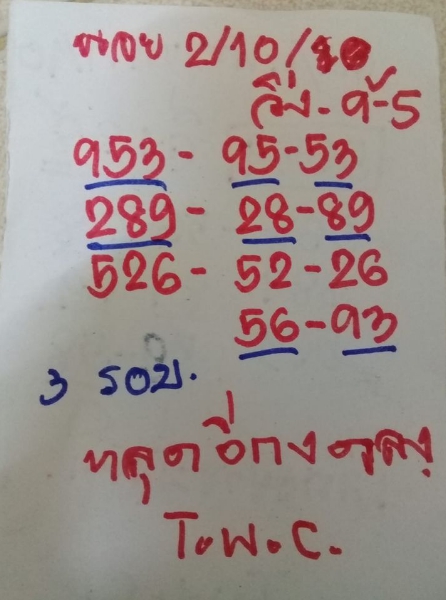 หวย 2/10/
วิ่ง - 9-5
953 - 95-53
289 - 28-89
526 - 52-26
56-93
3 รอบ.
หลุดอีก
T.W.C.